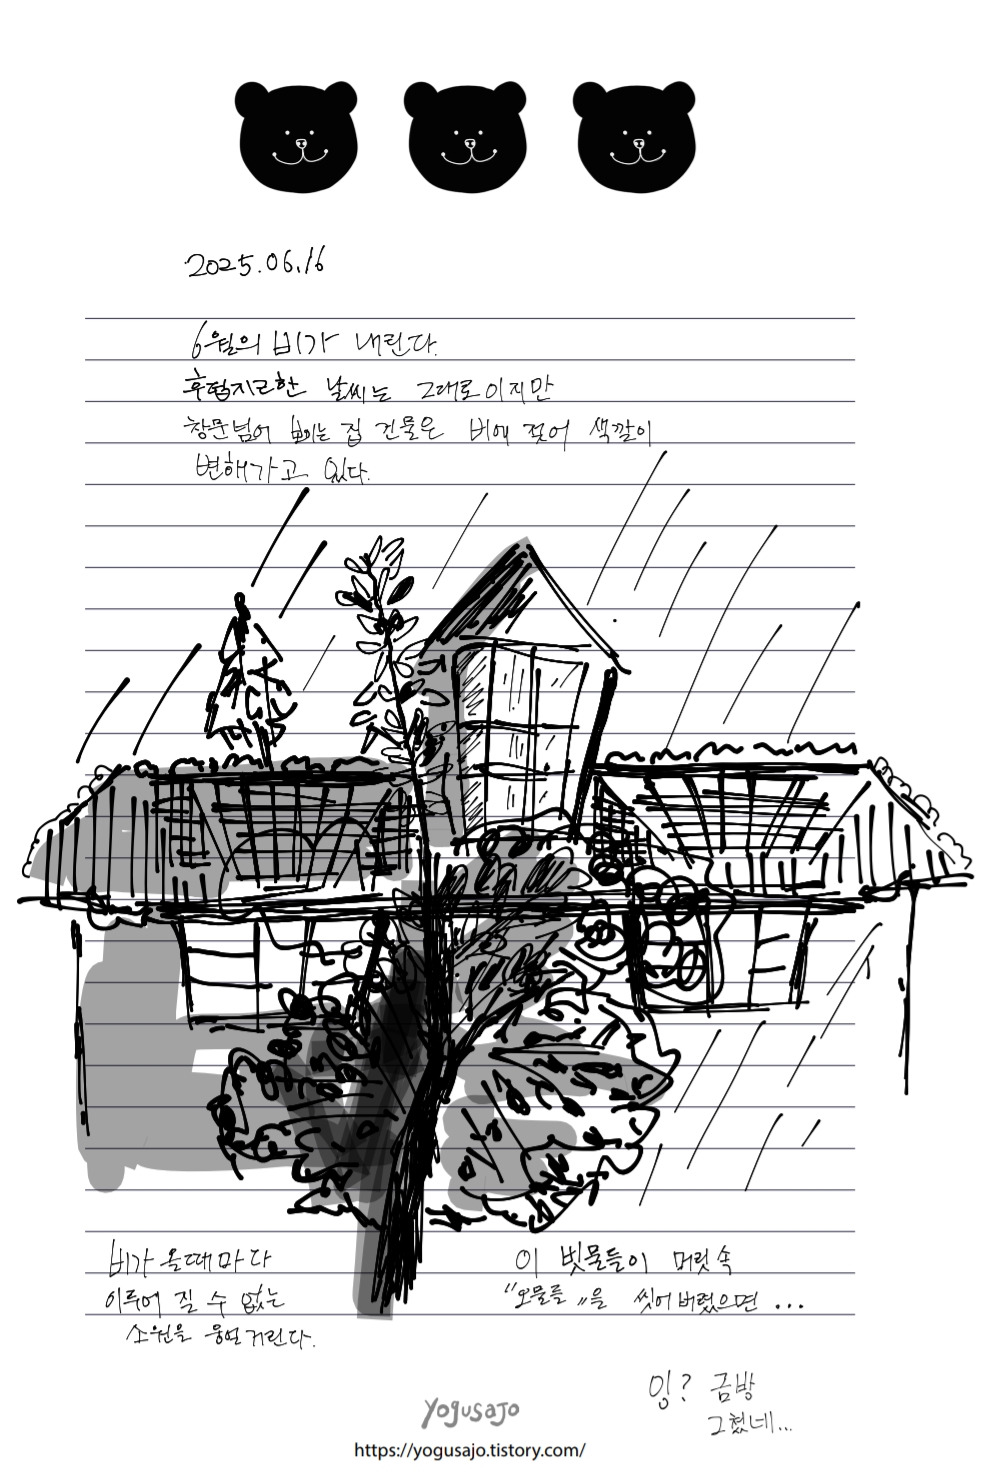 2025.06.16
6월의 비가 내린다.
후텁지근한 날씨는 그대로이지만
창문넘어 보이는 집 건물은 비에 젖어 색깔이
변해가고 있다.
비가 올때마다
이루어 질 수 없는
소원을 웅얼거린다.
이 빗물들이 머릿속
"오물들"을 씻어버렸으면 ...
잉? 금방
그쳤네...
yogusajo
https://yogusajo.tistory.com/